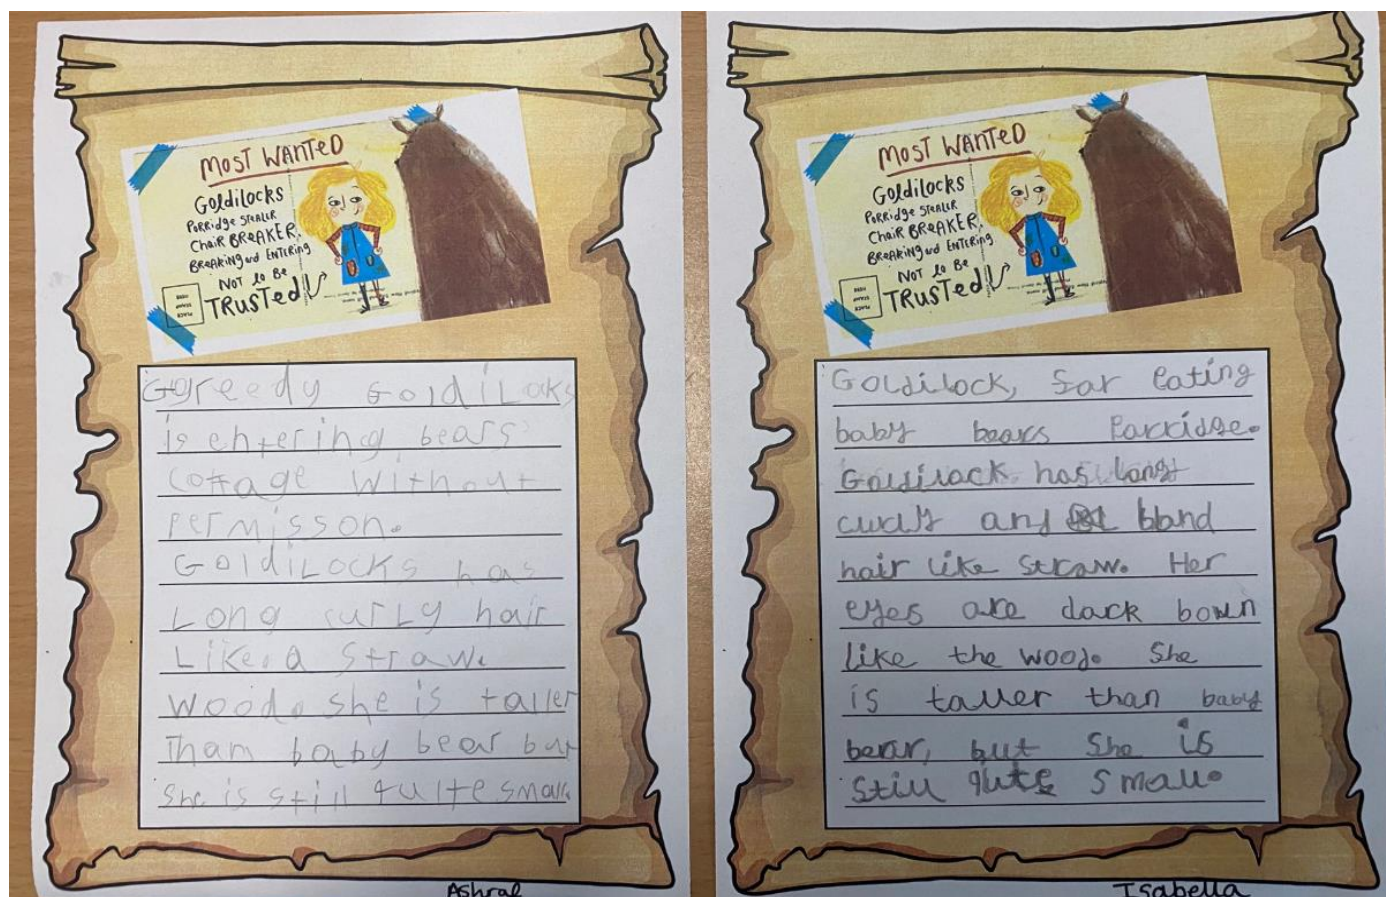 MOST WANTED
Goldilocks
PORRidge STEALER
ChaiR BREAKER,
BREAKiNg and ENTERiNg
NOT to Be
TRUSTed
PLACE
STAMP
HERE
Greedy GoldiLoks
is entering bears
cottage Without
permisson.
GoldiLocks has
Long curly hair
Like a Straw.
Wood. she is taller
Tham baby bear but
She is still quite small.
Ashral
MOST WANTED
Goldilocks
PORRidge STEALER
ChaiR BREAKER,
BREAKiNg and ENTERiNg
NOT to Be
TRUSTed
PLACE
STAMP
HERE
Goldilock, for eating
baby bears Parridge.
Goldilock has long
curly and blond
hair like straw. Her
eyes are dark bown
like the wood. She
is taller than baby
bear, but She is
still quite small.
Isabella